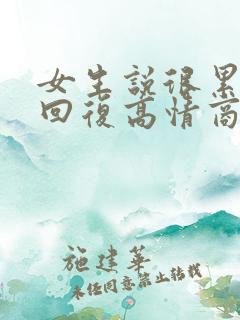 女生說很累
回復高情商
施建華
未任同意禁止转载